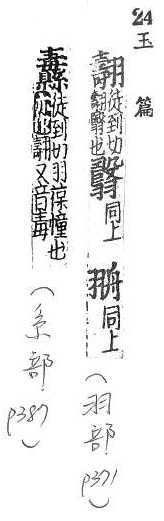 24 玉篇
翿徒到切翿翳也翳同上䎃同上
(羽部 p371)
纛徒到切羽葆幢也
又音毒
(糸部 p387)